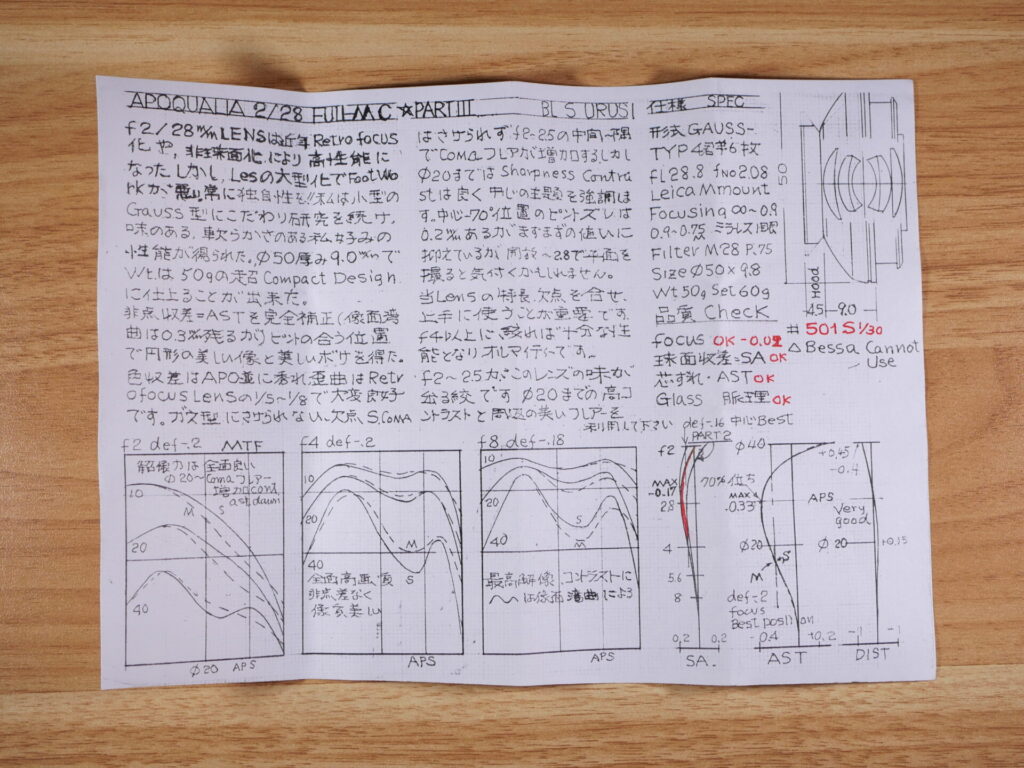 APOQUALIA 2/28 FUll-MC ☆PART III BL S URUSI
f2/28㎜ LENSは近年Retro focus
化や,非球面化により高性能に
なった.しかし,Lesの大型化でFootWo
rkが悪い,常に独自性を
Gauss型にこだわり研究を続け,
味のある,軟らかさのある私好みの
性能が得られた。φ50厚み9.0㎜で
Wt.は50gの超Compact Design
に仕上ることが出来た。
非点収差=ASTを完全補正(像面湾
曲は0.3㎜残るが)ピットの合う位置
で円形の美しい像と美しいボケを得た。
色収差はAPO並に秀れ歪曲はRetr
ofocus Lensの1/5~1/8で大変良好
です。ガウス型にさけられない欠点S.Coma
はさけられずf2-2.5の中間-隅
でComaフレアが増加するしかし
φ20まではSharpness Contra
stは良く中心の主題を強調しま
す.中心-70%位置のピントズレは
0.2㎜あるがまずまずの値いに
抑えているが開放~2.8で平面を
撮ると気付くかもしれません。
当Lensの特長,欠点を合せ,
上手に使うことが重要です.
f4以上に絞れば十分な性
能となりオルマイティーです。
f2~2.5がこのレンズの味が
出る絞です φ20までの高コ
ントラストと周辺の美しいフレアーを
利用して下さい
仕様 SPEC
形式 GAUSS-
TYP 4群6枚
fL 28.8 fNo 2.08
Leica M mount
Focusing ∞~0.9
0.9~0.75 M ミラレス1眼
Filter M28 P.75
Size φ50×9.8
Wt 50g Set 60g
品質 Check
focus OK -0.02
球面収差=SA OK
芯ずれ・AST OK
Glass 脈理 OK
50
HOOD
4.5 9.0
# 501S 1/30
△Bessa Cannot
Use
f2 def-.2 MTF
解像力は全面良い
φ20~ Comaフレアー
増加Cont
ast.dawn
10
M S
20
40
φ20 APS
f4 def-.2
10
20
40
M
S
全面高画質
非点差なく
像高美しい
APS
f8 def-.18
10
20
40
S
M
最高解像 コントラストに
は像面湾曲による
APS
def-.16 中心Best
PART2
f2
MAX
-0.17
2.8
70%位ち
4
5.6
8
0.2 0.2
SA.
φ40
MAX
.0.33
APS
φ20
S
M
def=2
focus
Best position
0.4 +0.2
AST
+0.45/
-0.4
Very
good
φ20
+0.15
-1 -1
DIST